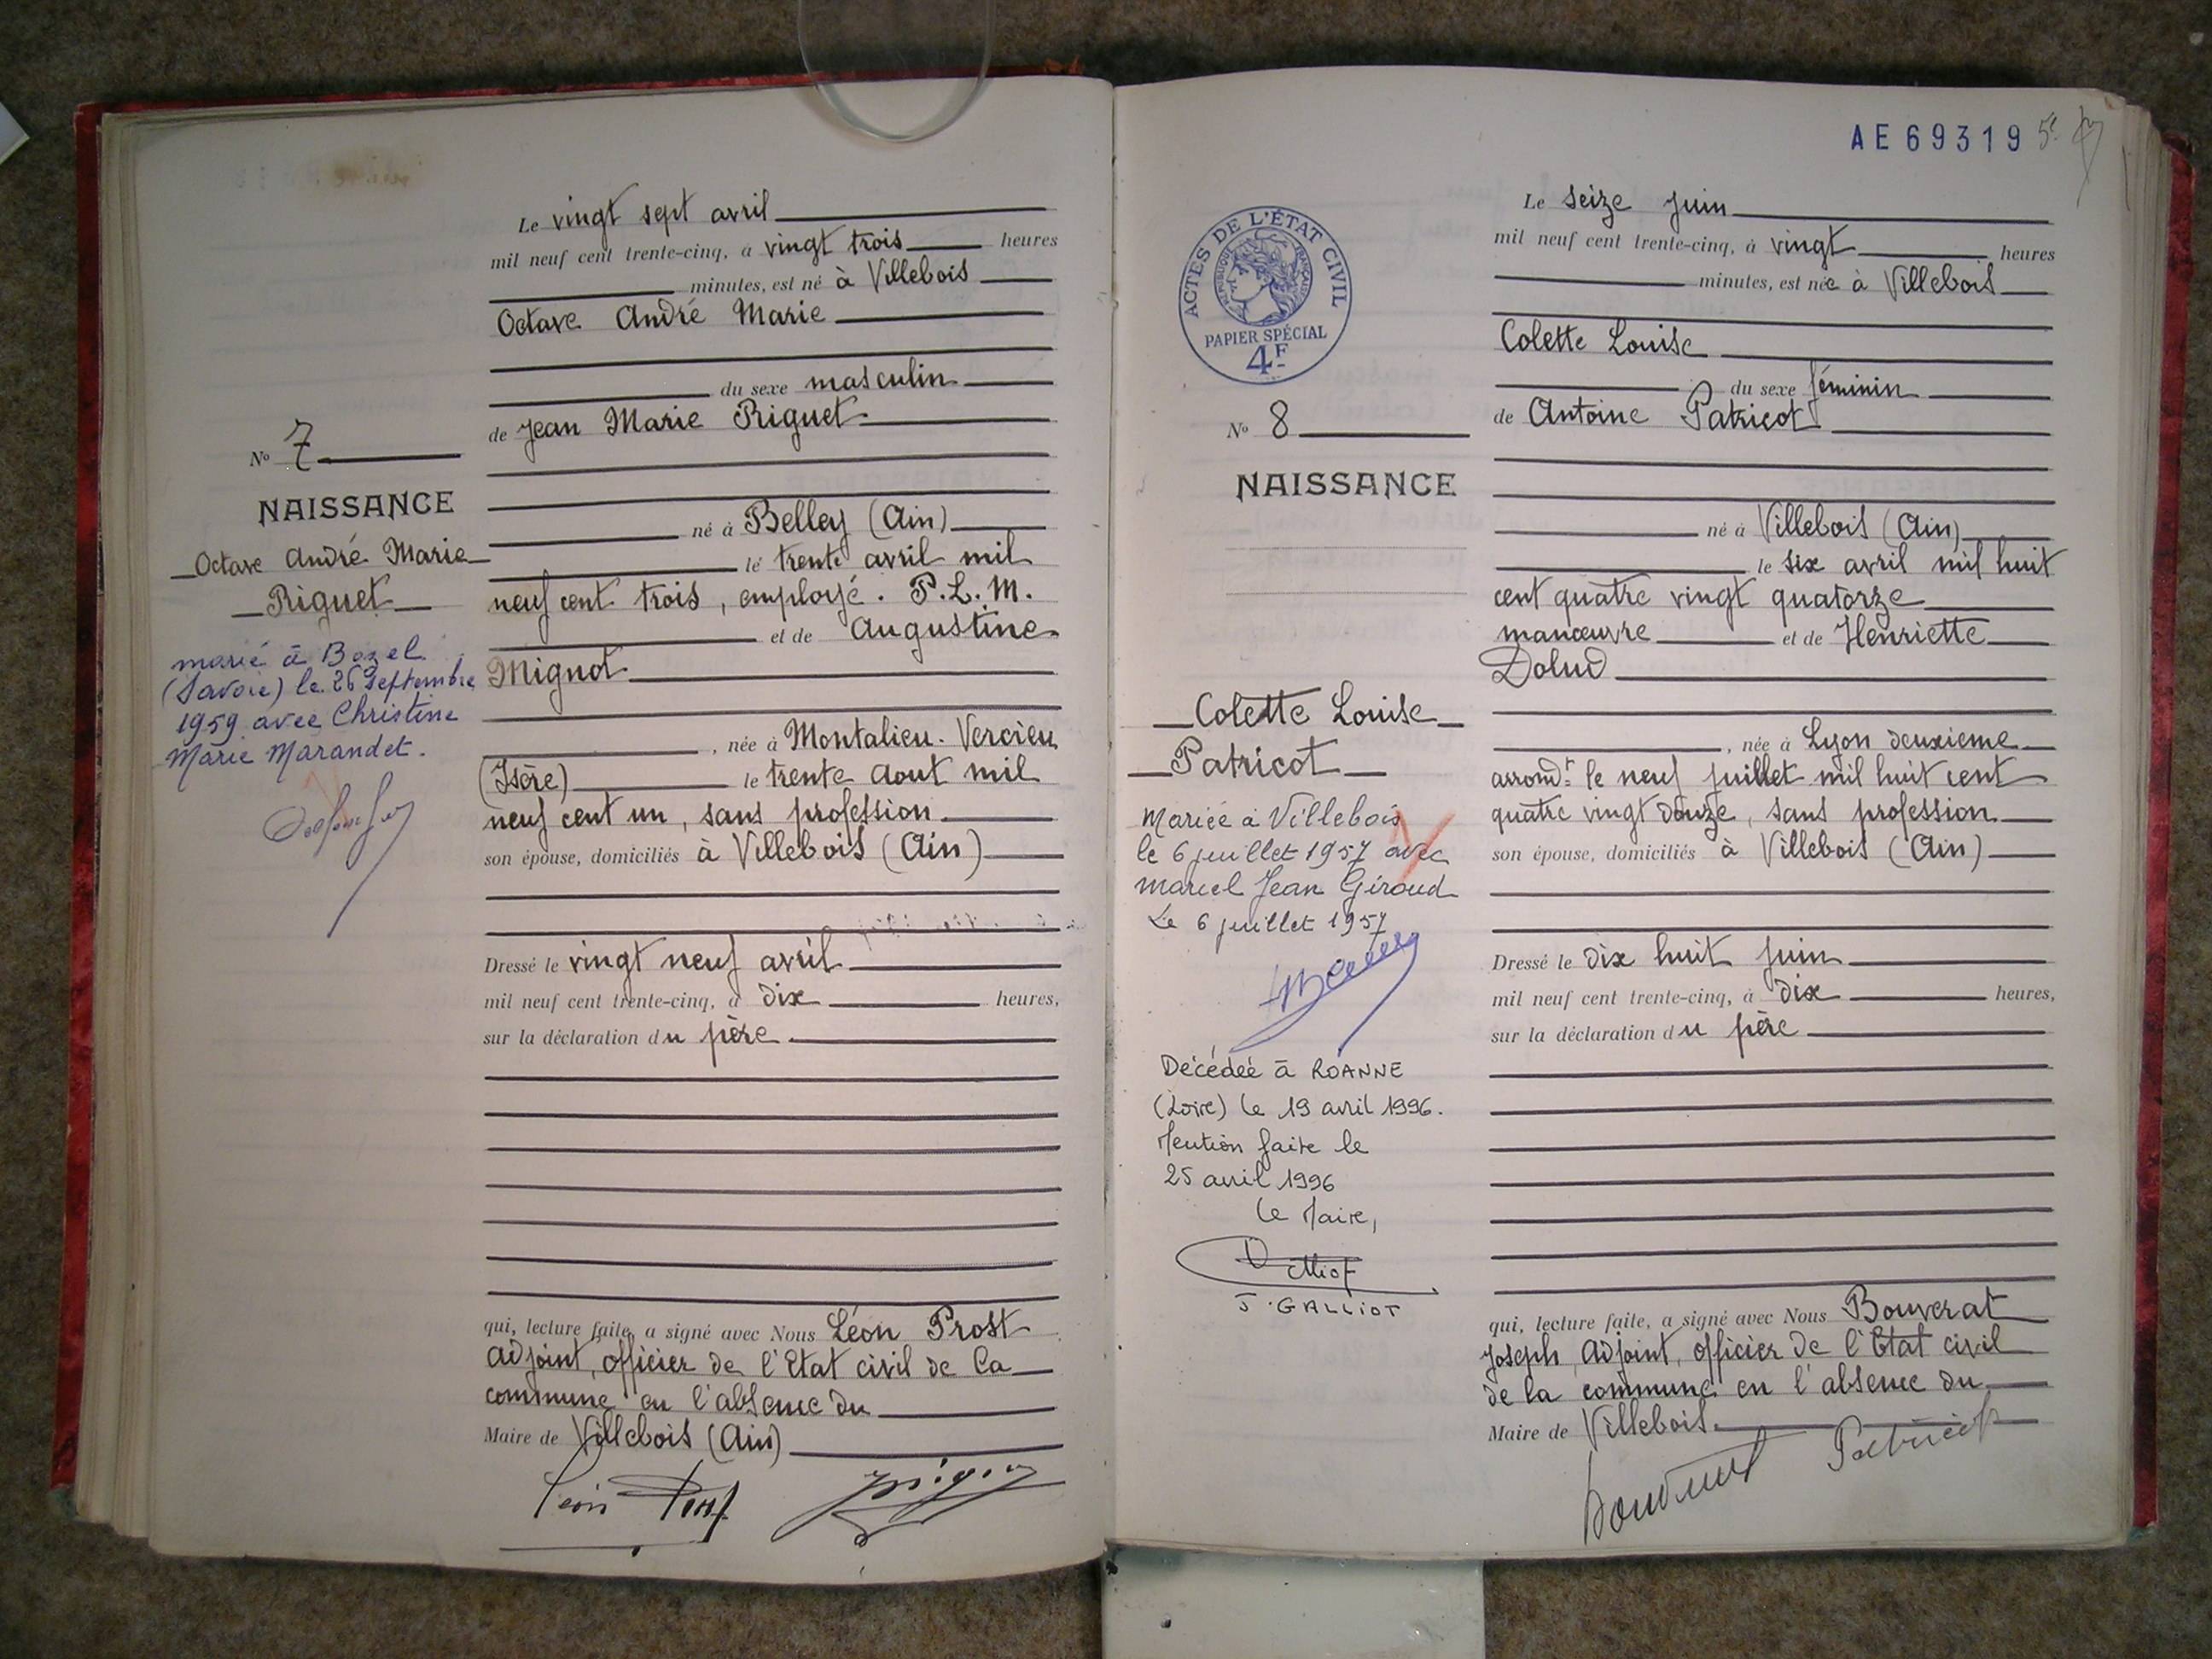 Le vingt sept avril
mil neuf cent trente-cinq, à vingt trois heures
minutes, est né à Villebois
Octave André Marie
du sexe masculin
de Jean Marie Riguet
né à Belley (Ain)
le trente avril mil
neuf cent trois, employé. P.L.M.
et de Augustine
Mignot
, née à Montalieu-Vercieu
(Isère) le trente Aout mil
neuf cent un, sans profession
son épouse, domiciliés à Villebois (Ain)
Dressé le vingt neuf avril
mil neuf cent trente-cinq, à dix heures,
sur la déclaration du père
qui, lecture faite, a signé avec Nous Léon Prost
adjoint, officier de l'Etat civil de la
commune en l'absence du
Maire de Villebois (Ain)
Léon Prost
No 7
NAISSANCE
Octave André Marie
Riguet
marié à Bozel
(Savoie) le 26 Septembre
1959 avec Christine
Marie Marandet.
AE69319
ACTES DE L'ÉTAT CIVIL
RÉPUBLIQUE FRANÇAISE
PAPIER SPÉCIAL
4F
No 8
NAISSANCE
Colette Louise
Patricot
Mariée à Villebois
le 6 juillet 1957 avec
Marcel Jean Giroud
Le 6 juillet 1957
Décédée à ROANNE
(Loire) le 19 avril 1996.
Mention faite le
25 avril 1996
Le Maire,
J. GALLIOT
Le seize juin
mil neuf cent trente-cinq, à vingt heures
minutes, est née à Villebois
Colette Louise
du sexe féminin
de Antoine Patricot
né à Villebois (Ain)
le six avril mil huit
cent quatre vingt quatorze
manœuvre et de Henriette
Dolud
, née à Lyon deuxième
arrondt le neuf juillet mil huit cent
quatre vingt douze, sans profession
son épouse, domiciliés à Villebois (Ain)
Dressé le dix huit juin
mil neuf cent trente-cinq, à dix heures,
sur la déclaration du père
qui, lecture faite, a signé avec Nous Bouverat
Joseph, Adjoint, officier de l'Etat civil
de la commune en l'absence du
Maire de Villebois.
Patricot